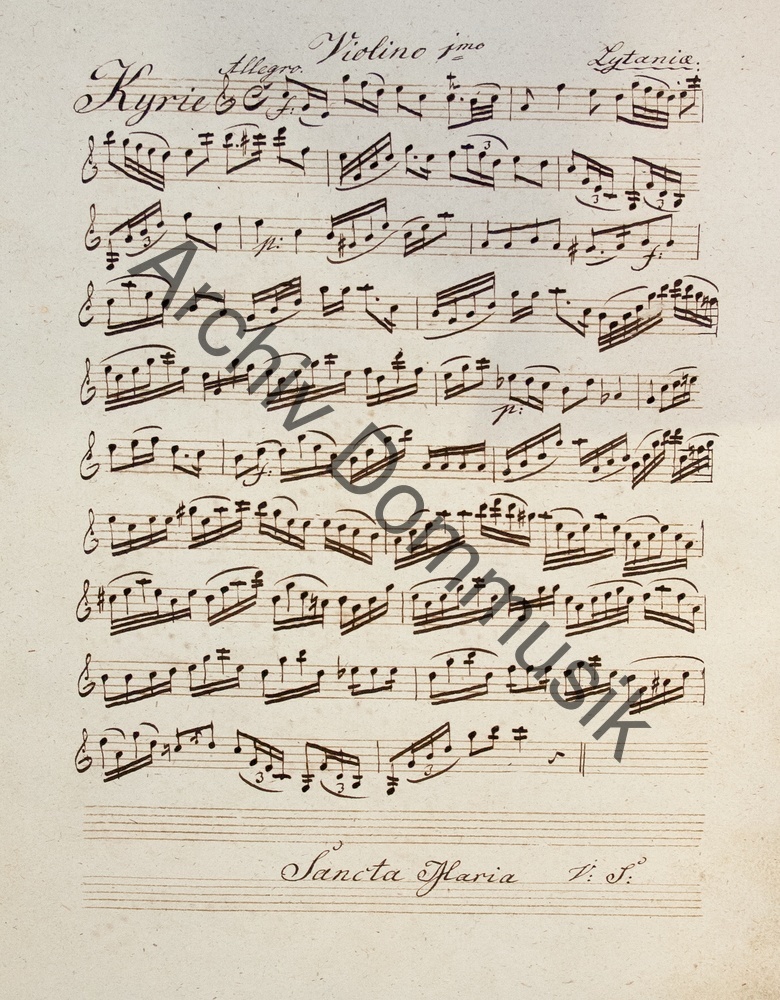 Violino jmo
Allegro. Lytaniæ:
Kyrie f:
3
3 3
3 p: f:
p:
f:
3 3 3
Sancta Maria V: S:
Archiv Dommusik